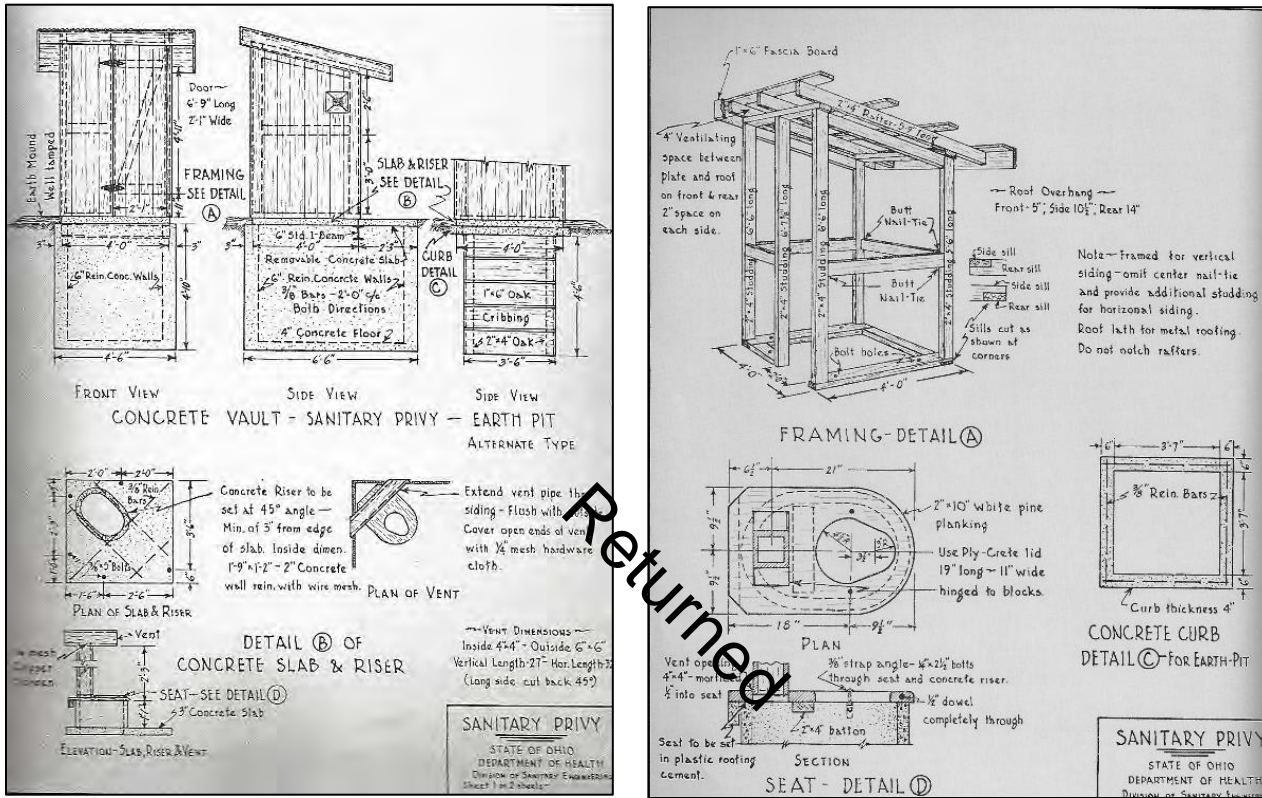 Door~
6'-9" Long
2'-1" Wide
Earth Mound
Well tamped
FRAMING
SEE DETAIL
A
4'-11"
2'-1"
11"
2'-6"
3'-0"
SLAB & RISER
SEE DETAIL
B
3"
4'-0"
3"
6" Rein. Conc. Walls
4'-0"
4'-6"
6" Std. I-Beam
3"
4'-0"
2'-3"
Removable Concrete Slab
6" Rein. Concrete Walls
3/8 Bars - 2'-0" c/c
Both Directions
4" Concrete Floor
6'-6"
CURB
DETAIL
C
4'-0"
1"×6" Oak
Cribbing
2"×4" Oak
3'-6"
FRONT VIEW
SIDE VIEW
SIDE VIEW
CONCRETE VAULT - SANITARY PRIVY - EARTH PIT
ALTERNATE TYPE
2'-0"
2'-0"
3/8" Rein.
Bars
2'-9"
3/8"×5" Bolts
1'-6"
2'-6"
PLAN OF SLAB & RISER
Concrete Riser to be
set at 45° angle -
Min. of 3" from edge
of slab. Inside dimen.
1'-9"×1'-2" - 2" Concrete
wall rein. with wire mesh.
PLAN OF VENT
Extend vent pipe
siding - Flush with
Cover open ends of vent
with 1/4" mesh hardware
cloth.
Vent
2'-3"
SEAT - SEE DETAIL D
3" Concrete Slab
ELEVATION - SLAB, RISER & VENT
DETAIL B OF
CONCRETE SLAB & RISER
~VENT DIMENSIONS~
Inside 4"×4" - Outside 6"×6"
Vertical Length-27" Hor. Length-
(Long side cut back 45°)
SANITARY PRIVY
STATE OF OHIO
DEPARTMENT OF HEALTH
DIVISION OF SANITARY ENGINEERING
Sheet 1 of 2 sheets
1"×6" Fascia Board
4" Ventilating
space between
plate and roof
on front & rear
2" space on
each side.
2"×4" Rafter-5'-9" long
2"×4" Studding 6'-6" long
2"×4" Studding 6'-7½" long
2"×4" Studding 6'-6" long
2"×4" Studding 5'-6" long
Butt
Nail-Tie
Butt
Nail-Tie
Bolt holes
4'-0"
4'-0"
~Roof Overhang~
Front-5"; Side 10½"; Rear 14"
Side sill
Rear sill
Side sill
Rear sill
Sills cut as
shown at
corners
Note-Framed for vertical
siding-omit center nail-tie
and provide additional studding
for horizonal siding.
Roof lath for metal roofing.
Do not notch rafters.
FRAMING-DETAIL A
6½"
21"
9½"
9½"
3½"
18"
9½"
PLAN
2"×10" White pine
planking
Use Ply-Crete lid
19" long - 11" wide
hinged to blocks.
6"
3'-7"
6"
6"
3'-7"
6"
3/8" Rein. Bars
Curb thickness 4"
CONCRETE CURB
DETAIL C - FOR EARTH-PIT
Vent opening
4"×4" - mortised
½ into seat
3/8" strap angle- ¼"×2½" bolts
through seat and concrete riser.
½" dowel
completely through
2"×4" batton
Seat to be set
in plastic roofing
cement.
SECTION
SEAT - DETAIL D
SANITARY PRIVY
STATE OF OHIO
DEPARTMENT OF HEALTH
DIVISION OF SANITARY
Returned